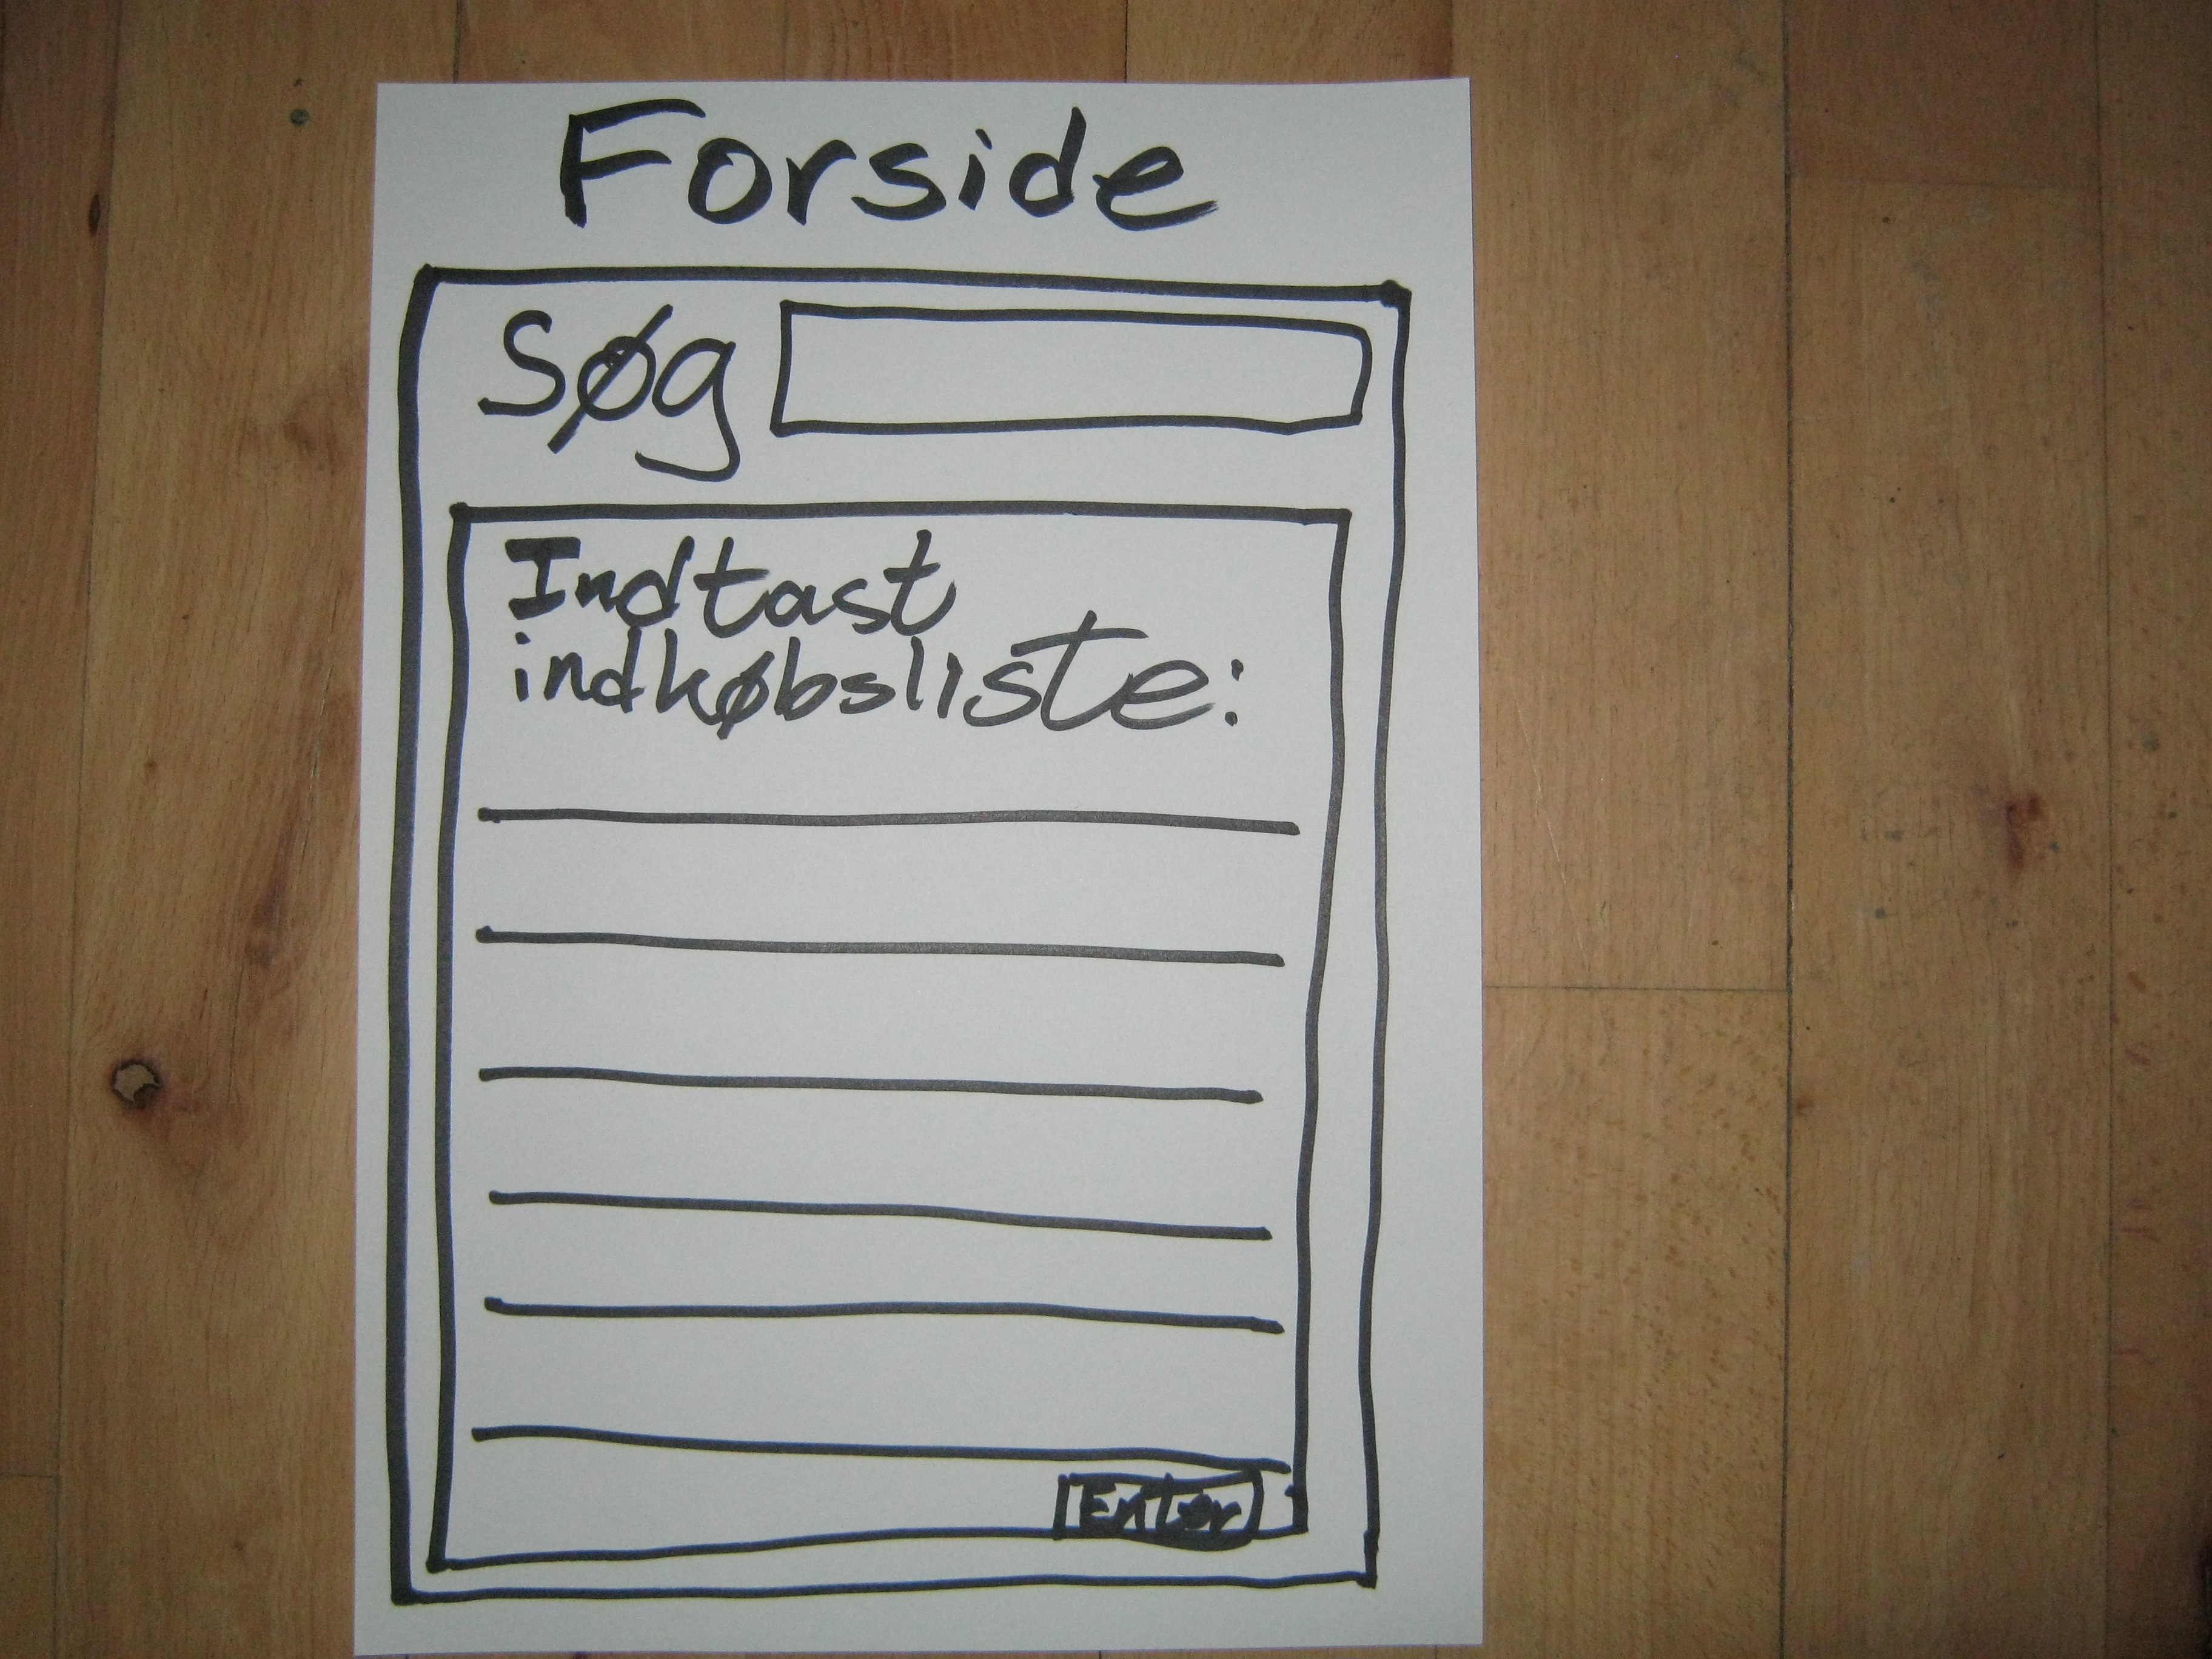 Forside
Søg
Indtast
indkøbsliste:
Enter